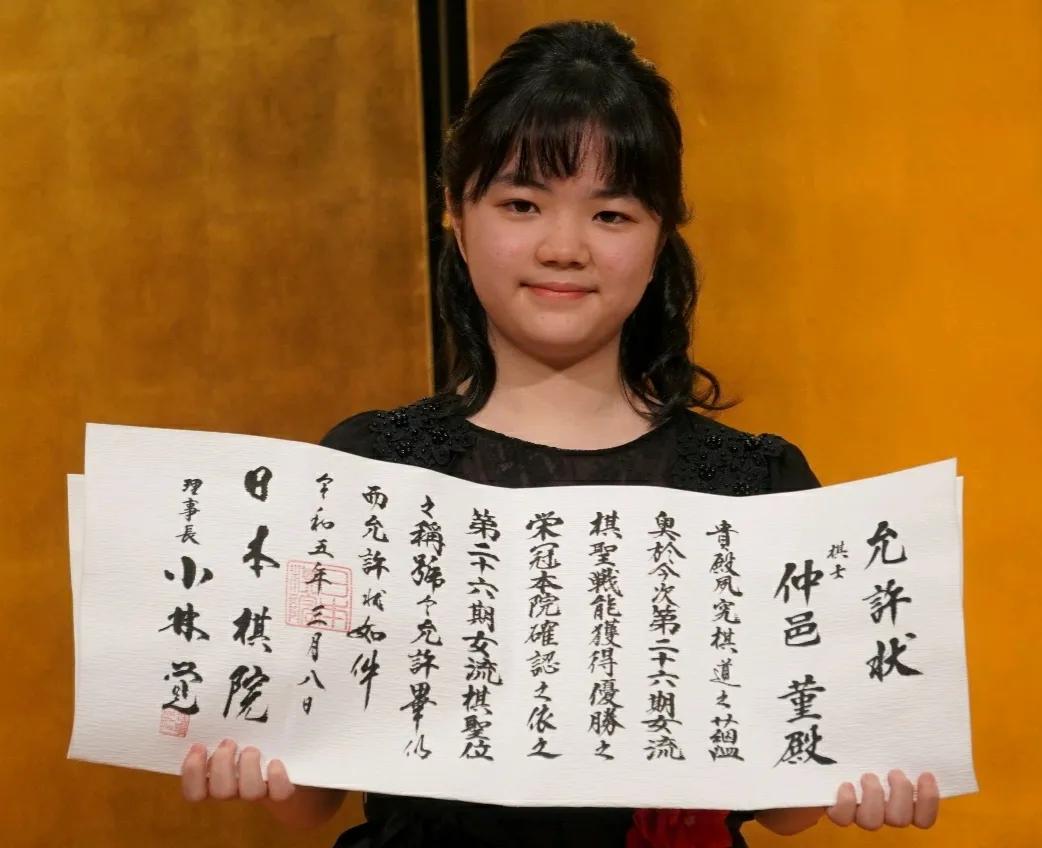 允許状
棋士
仲邑 菫殿
貴殿夙究棋道之蘊
奥於今次第二十六期女流
棋聖戦能獲得優勝之
栄冠本院確認之依之
第二十六期女流棋聖位
之稱號令允許畢仍
而允許状如件
令和五年三月八日
日本棋院
理事長 小林覚